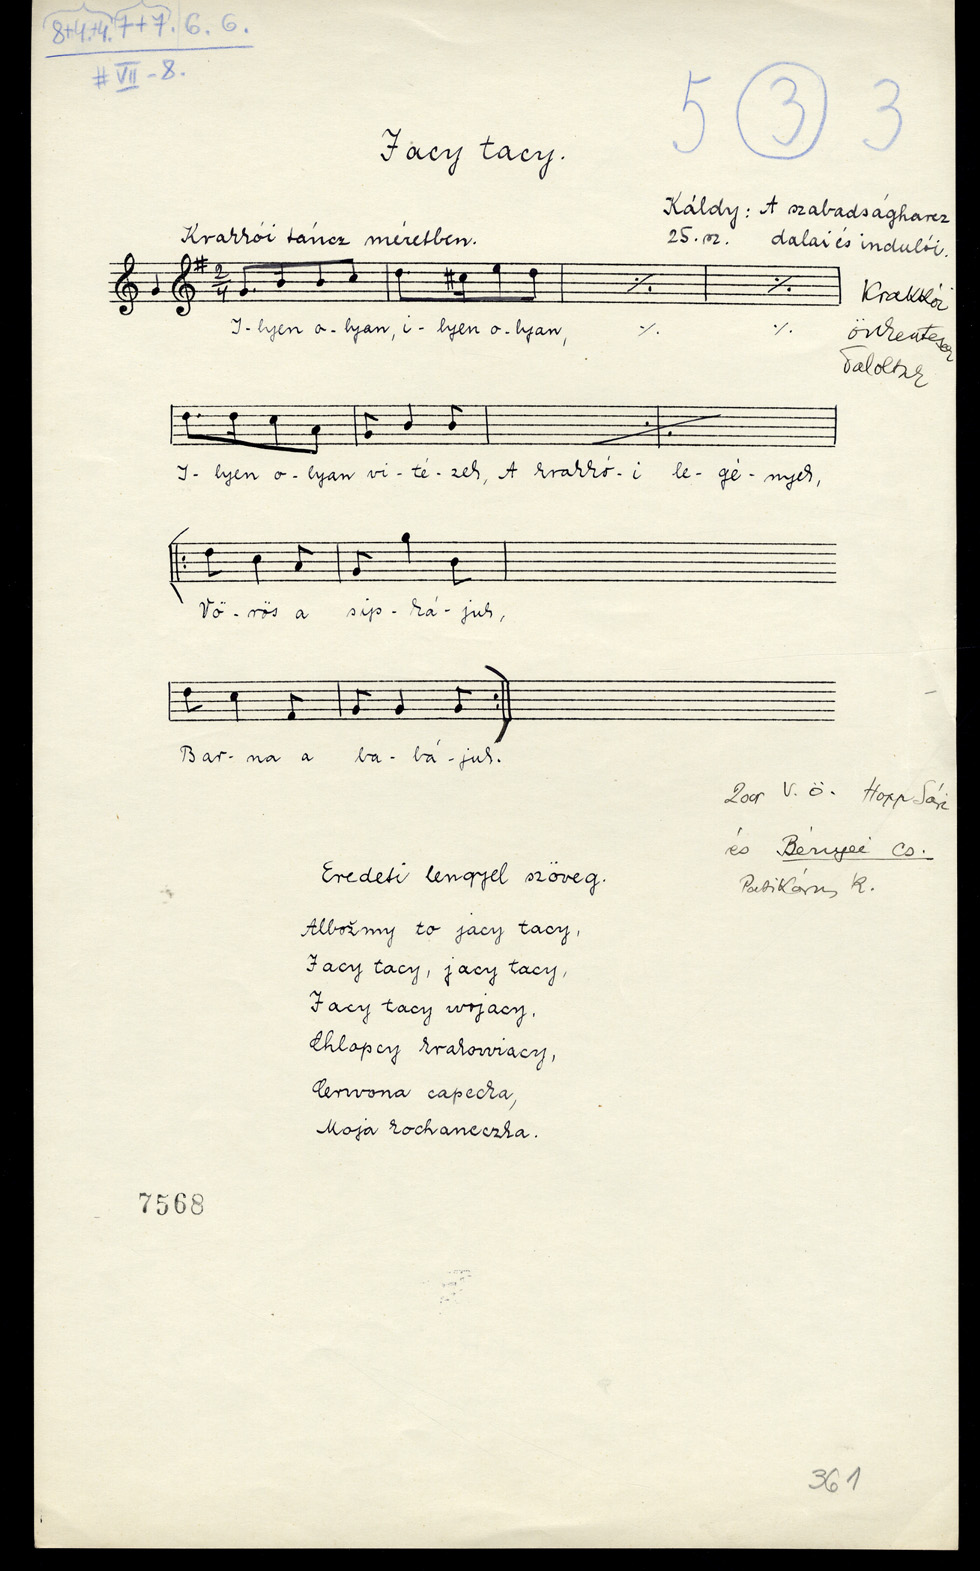 8+4+4. 7+7. 6. 6.
# VII - 8.
5 3 3
Jacy tacy.
Káldy: A szabadságharcz
25. sz. dalai és indulói.
Krakkói táncz méretben.
2/4
Krakkói
önkentesek
I-lyen o-lyan, i-lyen o-lyan, ·/. ·/.
I-lyen o-lyan vi-té-zek, A krakkó-i le-gé-nyek,
Vö-rös a sip-ká-juk,
Bar-na a ba-bá-juk.
V. ö. Hopp Sári
és Bényei Cs.
K.
Eredeti lengyel szöveg.
Albožmy to jacy tacy,
Jacy tacy, jacy tacy,
Jacy tacy wojacy,
Chlopcy krakowiacy,
Cerwona capecka,
Moja kochaneczka.
7568
361